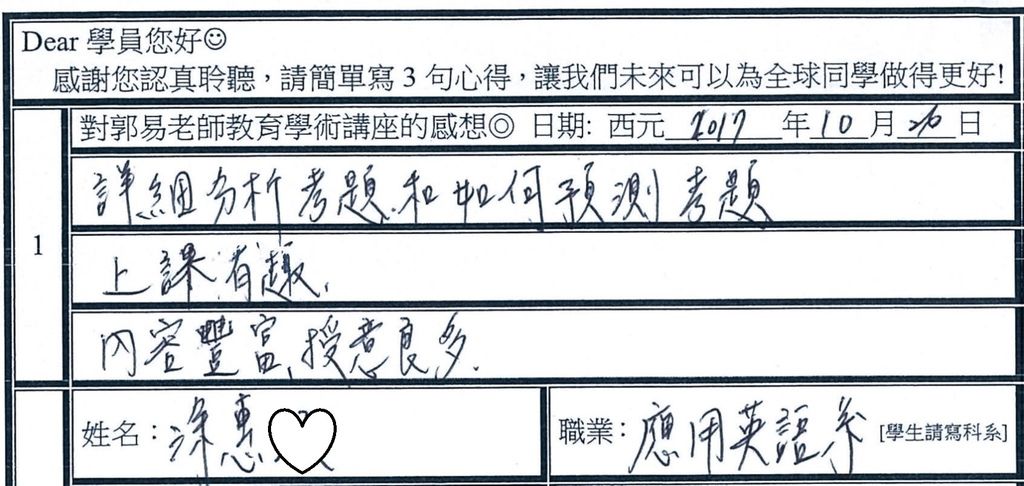 Dear 學員您好☺
感謝您認真聆聽，請簡單寫 3 句心得，讓我們未來可以為全球同學做得更好!
對郭易老師教育學術講座的感想◎ 日期: 西元 2017 年 10 月 26 日
1
詳細分析考題和如何預測考題
上課有趣.
內容豐富,授意良多.
姓名：涂惠
職業：應用英語系 [學生請寫科系]